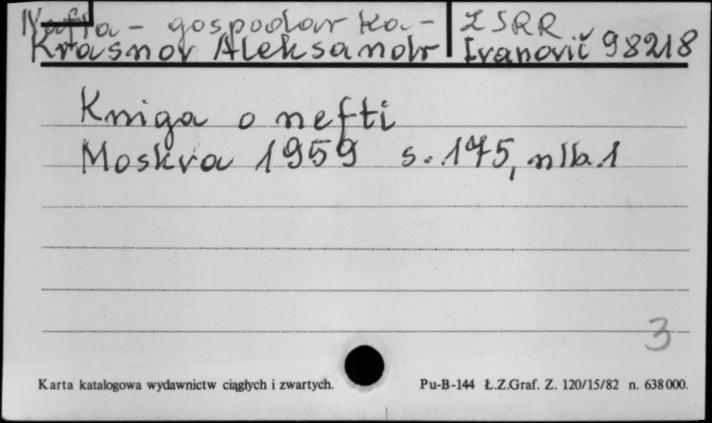 Nafta - gospodarka - ZSRR
Krasnov Aleksandr Ivanovič 98218
Kniga o nefti
Moskva 1959 s. 175, nlb. 1
3
Karta katalogowa wydawnictw ciągłych i zwartych. Pu-B-144 Ł.Z.Graf. Z. 120/15/82 n. 638000.